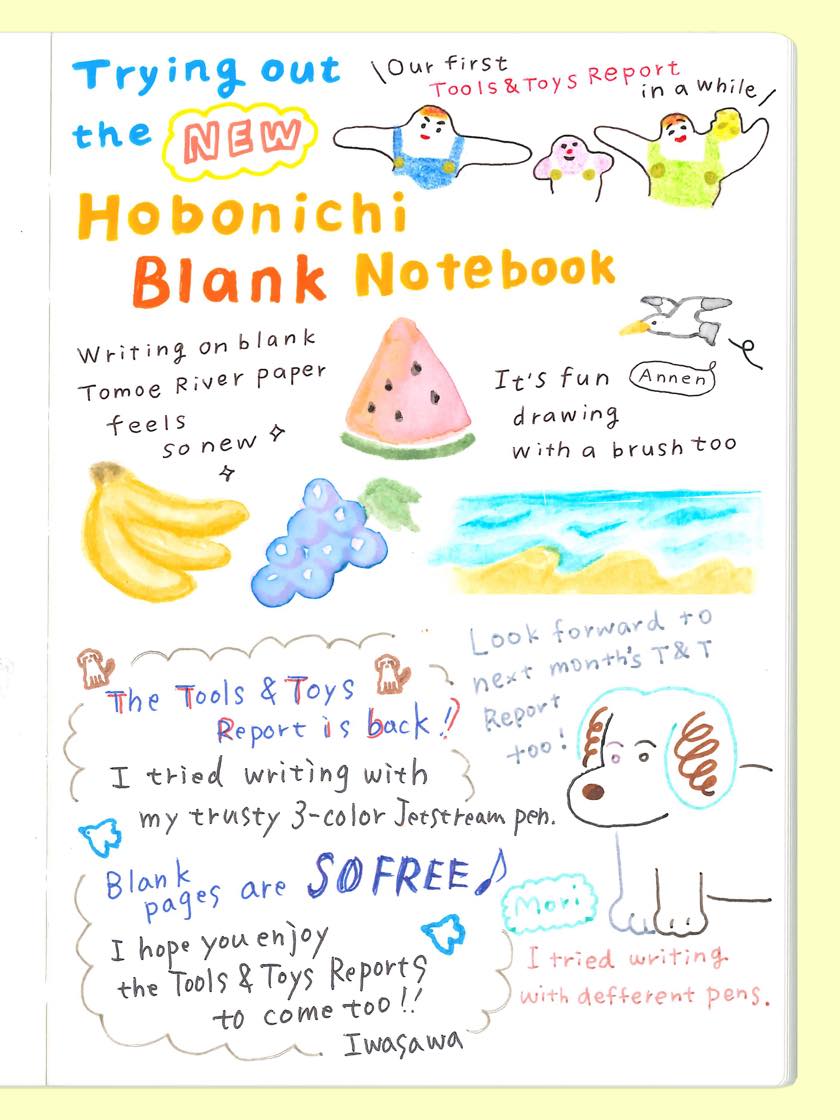 Trying out
the NEW
\Our first
Tools&Toys Report
in a while/
Hobonichi
Blank Notebook
Writing on blank
Tomoe River paper
feels
so new
It's fun
drawing
with a brush too
Annen
The Tools & Toys
Report is back!
I tried writing with
my trusty 3-color Jetstream pen.
Blank
pages are SO FREE♪
I hope you enjoy
the Tools & Toys Reports
to come too!!
Iwasawa
Look forward to
next month's T&T
Report
too!
Mori
I tried writing
with defferent pens.